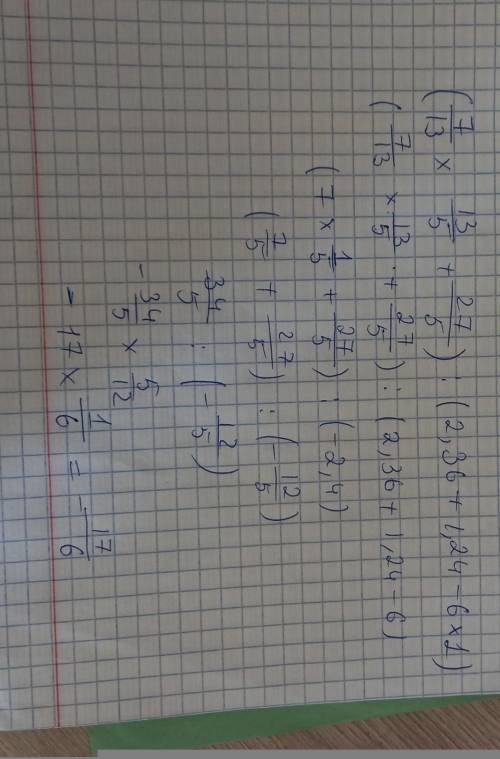 (7/13 × 13/5 + 27/5) : (2,36 + 1,24 - 6 × 1)
(7/13 × 13/5 + 27/5) : (2,36 + 1,24 - 6)
(7 × 1/5 + 27/5) : (-2,4)
(7/5 + 27/5) : (-12/5)
34/5 : (-12/5)
-34/5 × 5/12
-17 × 1/6 = -17/6